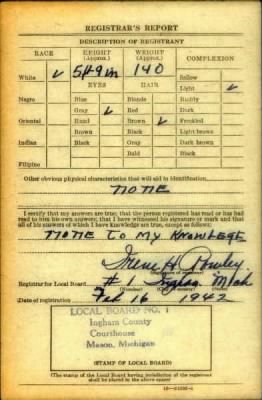 REGISTRAR'S REPORT
DESCRIPTION OF REGISTRANT
RACE HEIGHT (Approx.) WEIGHT (Approx.) COMPLEXION
White ✓ 5ft 9 in 140 Sallow
EYES HAIR Light ✓
Negro Blue Blonde Ruddy
Gray ✓ Red Dark
Oriental Hazel Brown ✓ Freckled
Brown Black Light brown
Indian Black Gray Dark brown
Bald Black
Filipino
Other obvious physical characteristics that will aid in identification
NONE
I certify that my answers are true; that the person registered has read or has
had read to him his own answers; that I have witnessed his signature or mark and that
all of his answers of which I have knowledge are true, except as follows:
NONE TO MY KNOWLEGE
Irene H.
Registrar for Local Board # Ingham Mich
(Number) (City or county) (State)
Date of registration Feb 16 1942
LOCAL BOARD NO. 1
Ingham County
Courthouse
Mason, Michigan
(STAMP OF LOCAL BOARD)
(The stamp of the Local Board having jurisdiction of the registrant
shall be placed in the above space.)